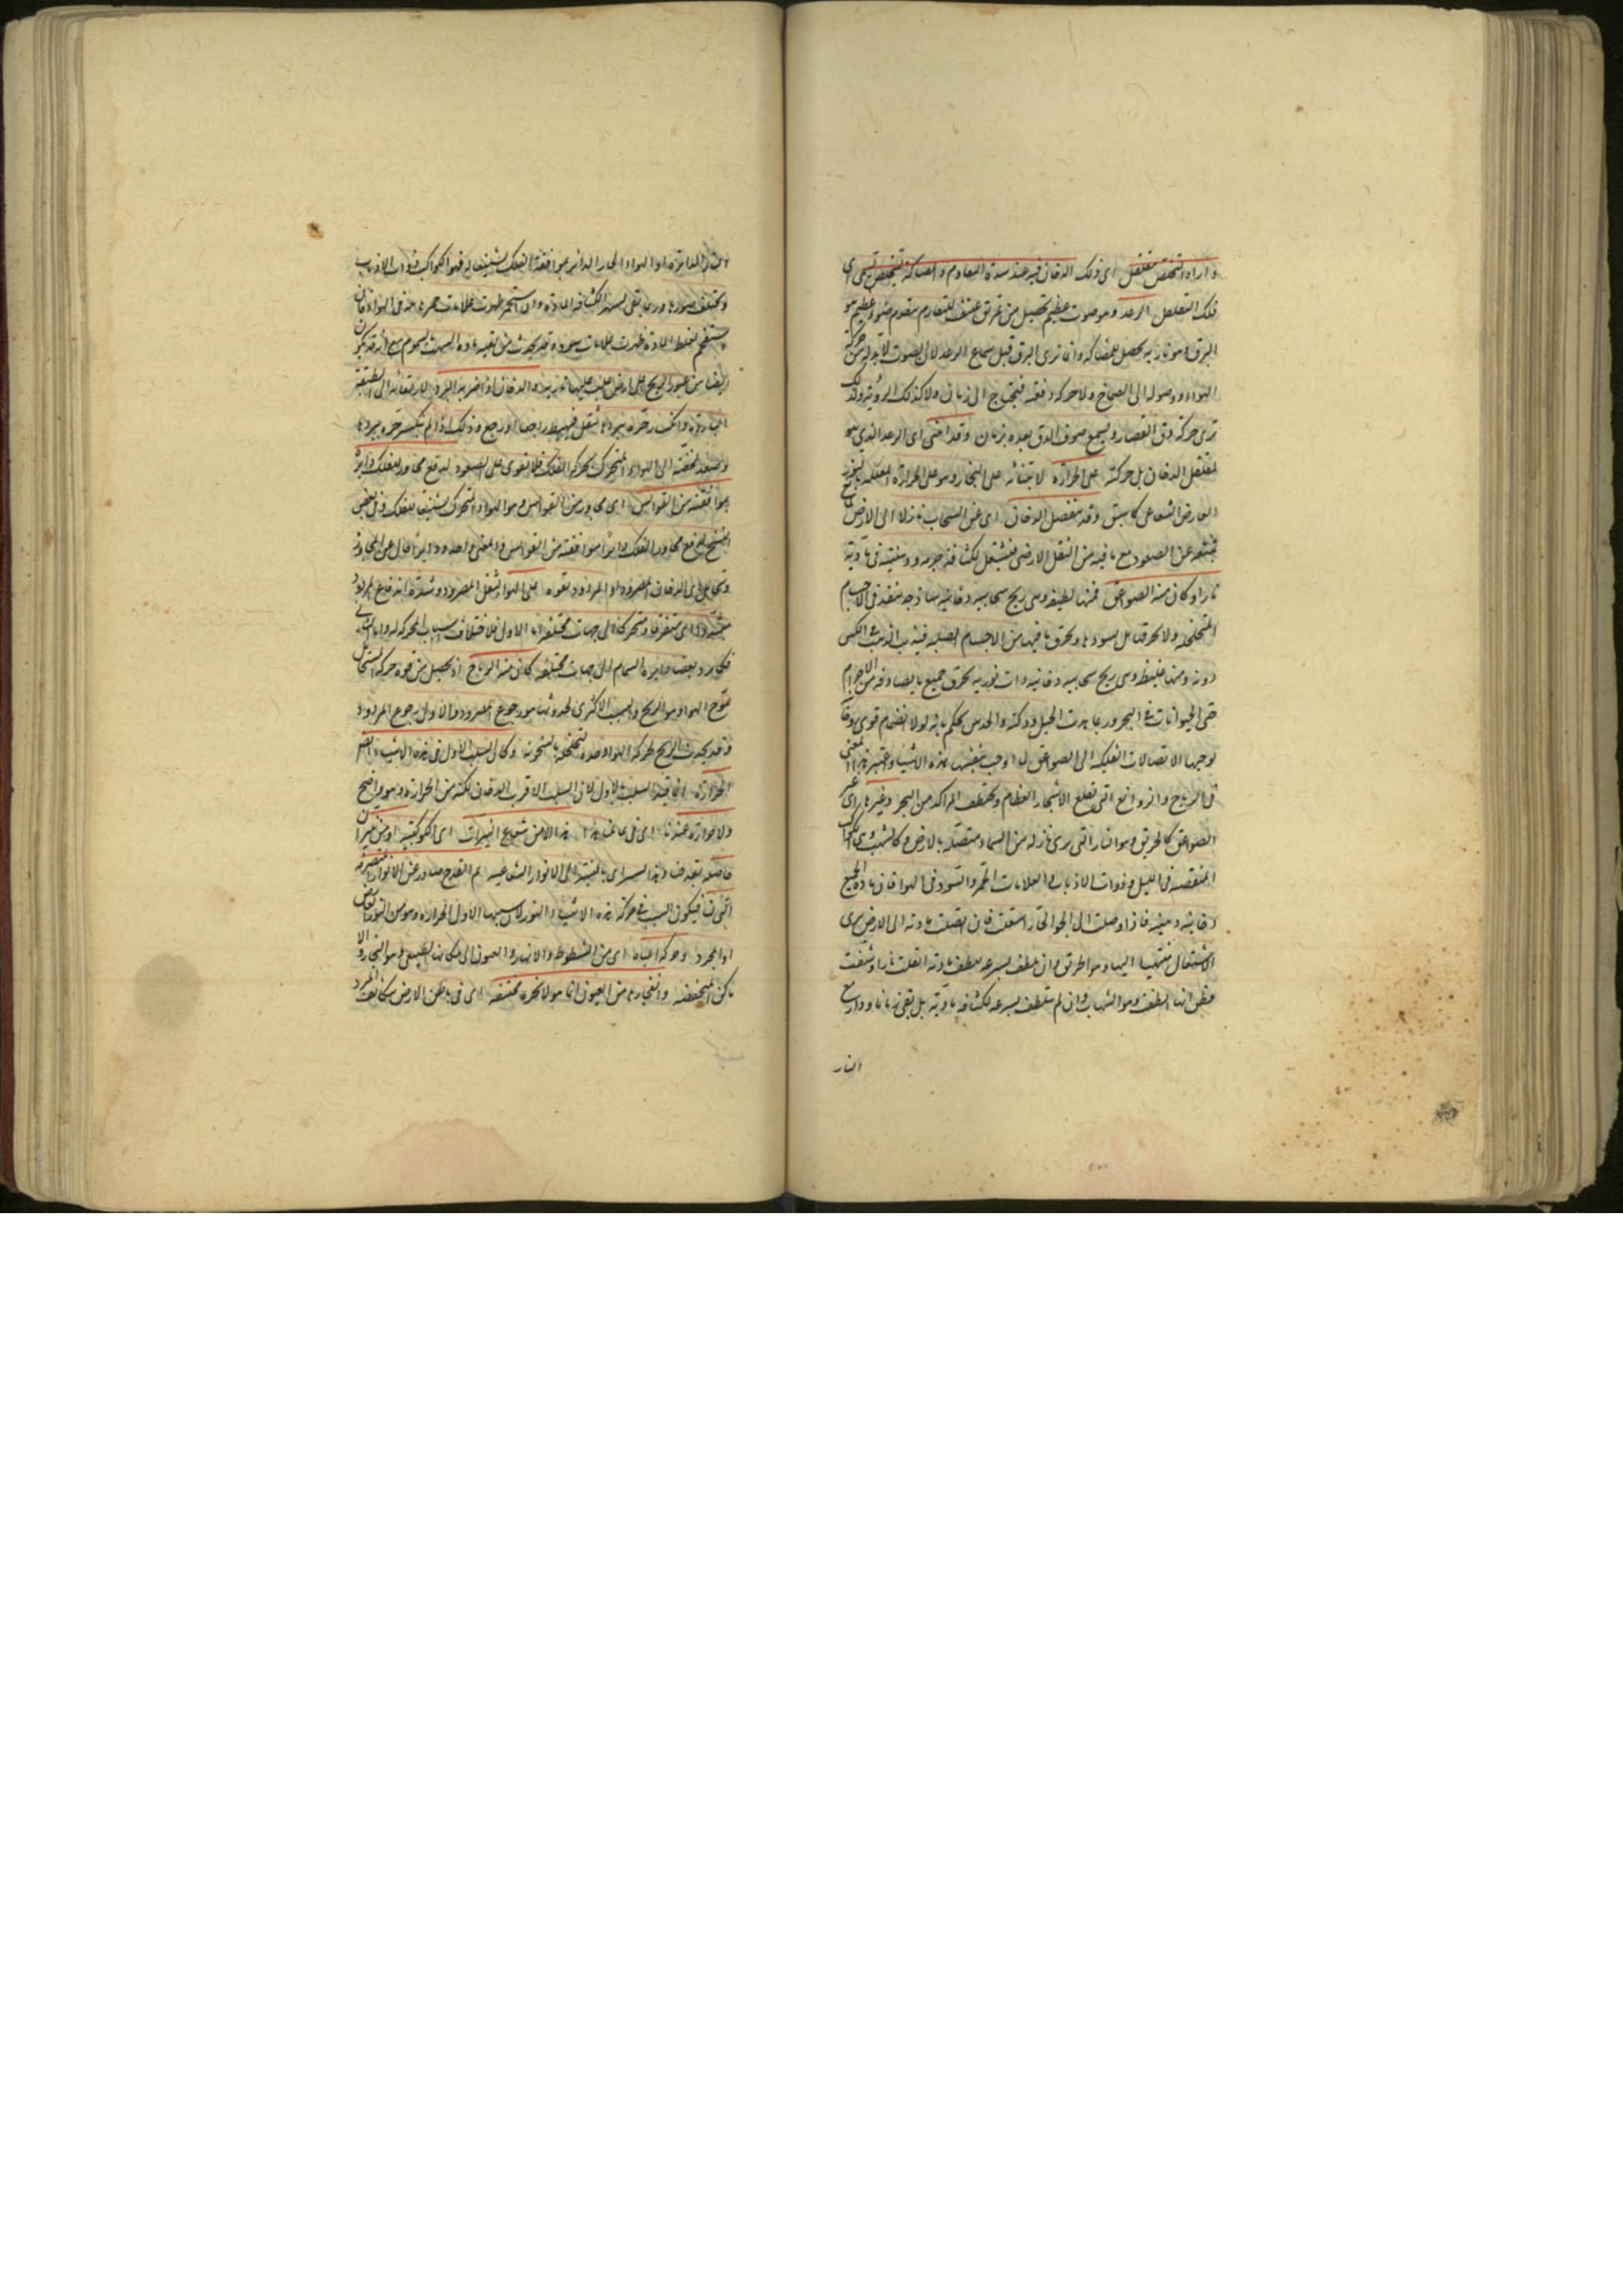 واراد التخلص تقلقل اى ذلك الدخان فيه عند شدة التقاوم والمصاكة للتخلص تسمى
ذلك التقلقل الرعد وهو صوت عظيم يحصل من تمزيق عنيف للتقاوم
البرق وهو نارية يحصل للمصاكة وانما ترى البرق قبل سماع الرعد لان الصوت لا بد له من حركة
الهواء ووصوله الى الصماخ ولا حركة دفعة فيحتاج الى زمان ولا كذلك الروية ولذلك
ترى حركة دق القصار ويسمع صوت الدق بعده بزمان وقد ابتنى اى الرعد الذى هو
تقلقل الدخان بل حركته على الحرارة لابتنائه على البخار وهو على الحرارة
العارض الشعاعى كما سبق وقد ينفصل الدخان اى عن السحاب نازلا الى الارض
لمنعه عن الصعود مع ما فيه من الثقل الارضى فيشتعل لكثافة جرمه ودهنيته فى مادته
نارا وكان منه الصواعق فمنها لطيفة وهى ريح سحابية دخانية ساذجة ينفذ فى الاجسام
المتخلخلة ولا يحرقها بل يسودها ويحرق ما فيها من الاجسام الصلبة فيذيب الذهب فى الكيس
دونه ومنها غليظة وهى ريح سحابية دخانية ذات نورية يحرق جميع ما يصادفه من الاجرام
حتى الحيوانات فى البحر وربما هدت الجبل ودكته والحدس يحكم بانه لولا انضمام قوى روحانية
يوجبها الاتصالات الفلكية الى الصواعق لما اوجب بنفسها هذه الاشياء واعتبر هذا المعنى
فى الرياح والزوابع التى تقلع الاشجار العظام وتختطف المراكب من البحر وغيرها
الصواعق كالحريق وهو النار التى ترى نازلة من السماء متصلة بالارض وكالشهب وهى الكواكب
المنقضة فى الليل وذوات الاذناب والعلامات الحمر والسود فى الهواء فان مادة الجميع
دخانية دهنية فاذا وصلت الى الجو الحار اشتعلت فان اتصلت مادته الى الارض يرى
الاشتعال منتهيا اليها وهو الحريق وان تلطف بسرعة للطف مادته انقلبت نارا وشفت
فظن انها انطفت وهو الشهاب وان لم تتلطف بسرعة لكثافة مادته بل بقى زمانا ودار مع
النار
النار الدايرة او الهواء الحار الدائر بموافقة الفلك لتشييعها له فهو الكواكب ذوات الاذناب
وتختلف صورها وربما تبقى لشدة كثافة المادة وان استجمرت ظهرت علامات حمر هائلة فى الهواء وان
يستفحم لغلظ المادة ظهرت علامات سود وقد يحدث من بقية مادة الشهب السموم وقد يكون
ايضا من عبور الريح على ارض غلب عليها نارية والدخان اذا ضربه البرد لارتقائه الى الطبقة
الباردة وانكسر حره ببردها ثقل فيهبط ايضا اى رجع وذلك اذا لم ينكسر حره ببردها
وصعد لخفته الى الهواء المتحرك بحركة الفلك فلا يقوى على الصعود لمدافعة مجاور الفلك دايرا
بموافقته من القوابس اى مجاور من القوابس وهو الهواء المتحرك لتشييعا للفلك وفى بعض
النسخ لمدافع مجاور الفلك دايرا بموافقته من القوابس والمعنى واحد ودايرا حال عن المجاور
وتحامل اى الدخان المصرود او المردود بقوة على الهواء لثقل المصرود وشدة اندفاع المردود
متبددا اى متفرقا ومتحركا الى جهات مختلفة اما الاول فلاختلاف اسباب الحركة له واما الثانى
فكما يرد بعض دايرة السهام الى جهات مختلفة كان منه الرياح اذ يحصل من قوة حركة
تموج الهواء وهو الريح والسبب الاكثرى لحدوثها هو رجوع المصرود والاول رجوع المردود
وقد يحدث الريح لحركة الهواء وحده لتخلخله بالسخونة وكان السبب الاول فى هذه الاشياء ايضا
الحرارة انما قيد السبب بالاول لان السبب الاقرب الدخان لكنه من الحرارة وهو واضح
ولا حرارة عندنا اى فى عالمنا هذا الا من شعاع النيرات اى الكوكبية او من نيران
حاصلة بقدحنا وهذا يسير اى بالنسبة الى الانوار الشعاعية ثم القدح صادر عن الانوار المتصرفة
التى لنا فيكون السبب فى حركة هذه الاشياء النور لان سببها الاول الحرارة وهو من النور
او المجرد وحركة المياه اى من الشطوط والانهار والعيون الى مكانها الطبيعى وهو البخار والا
ماكن المنخفضة وانفجارها من العيون انما هو لابخرة محتقنة اى فى باطن الارض يتكاثف بالبرد